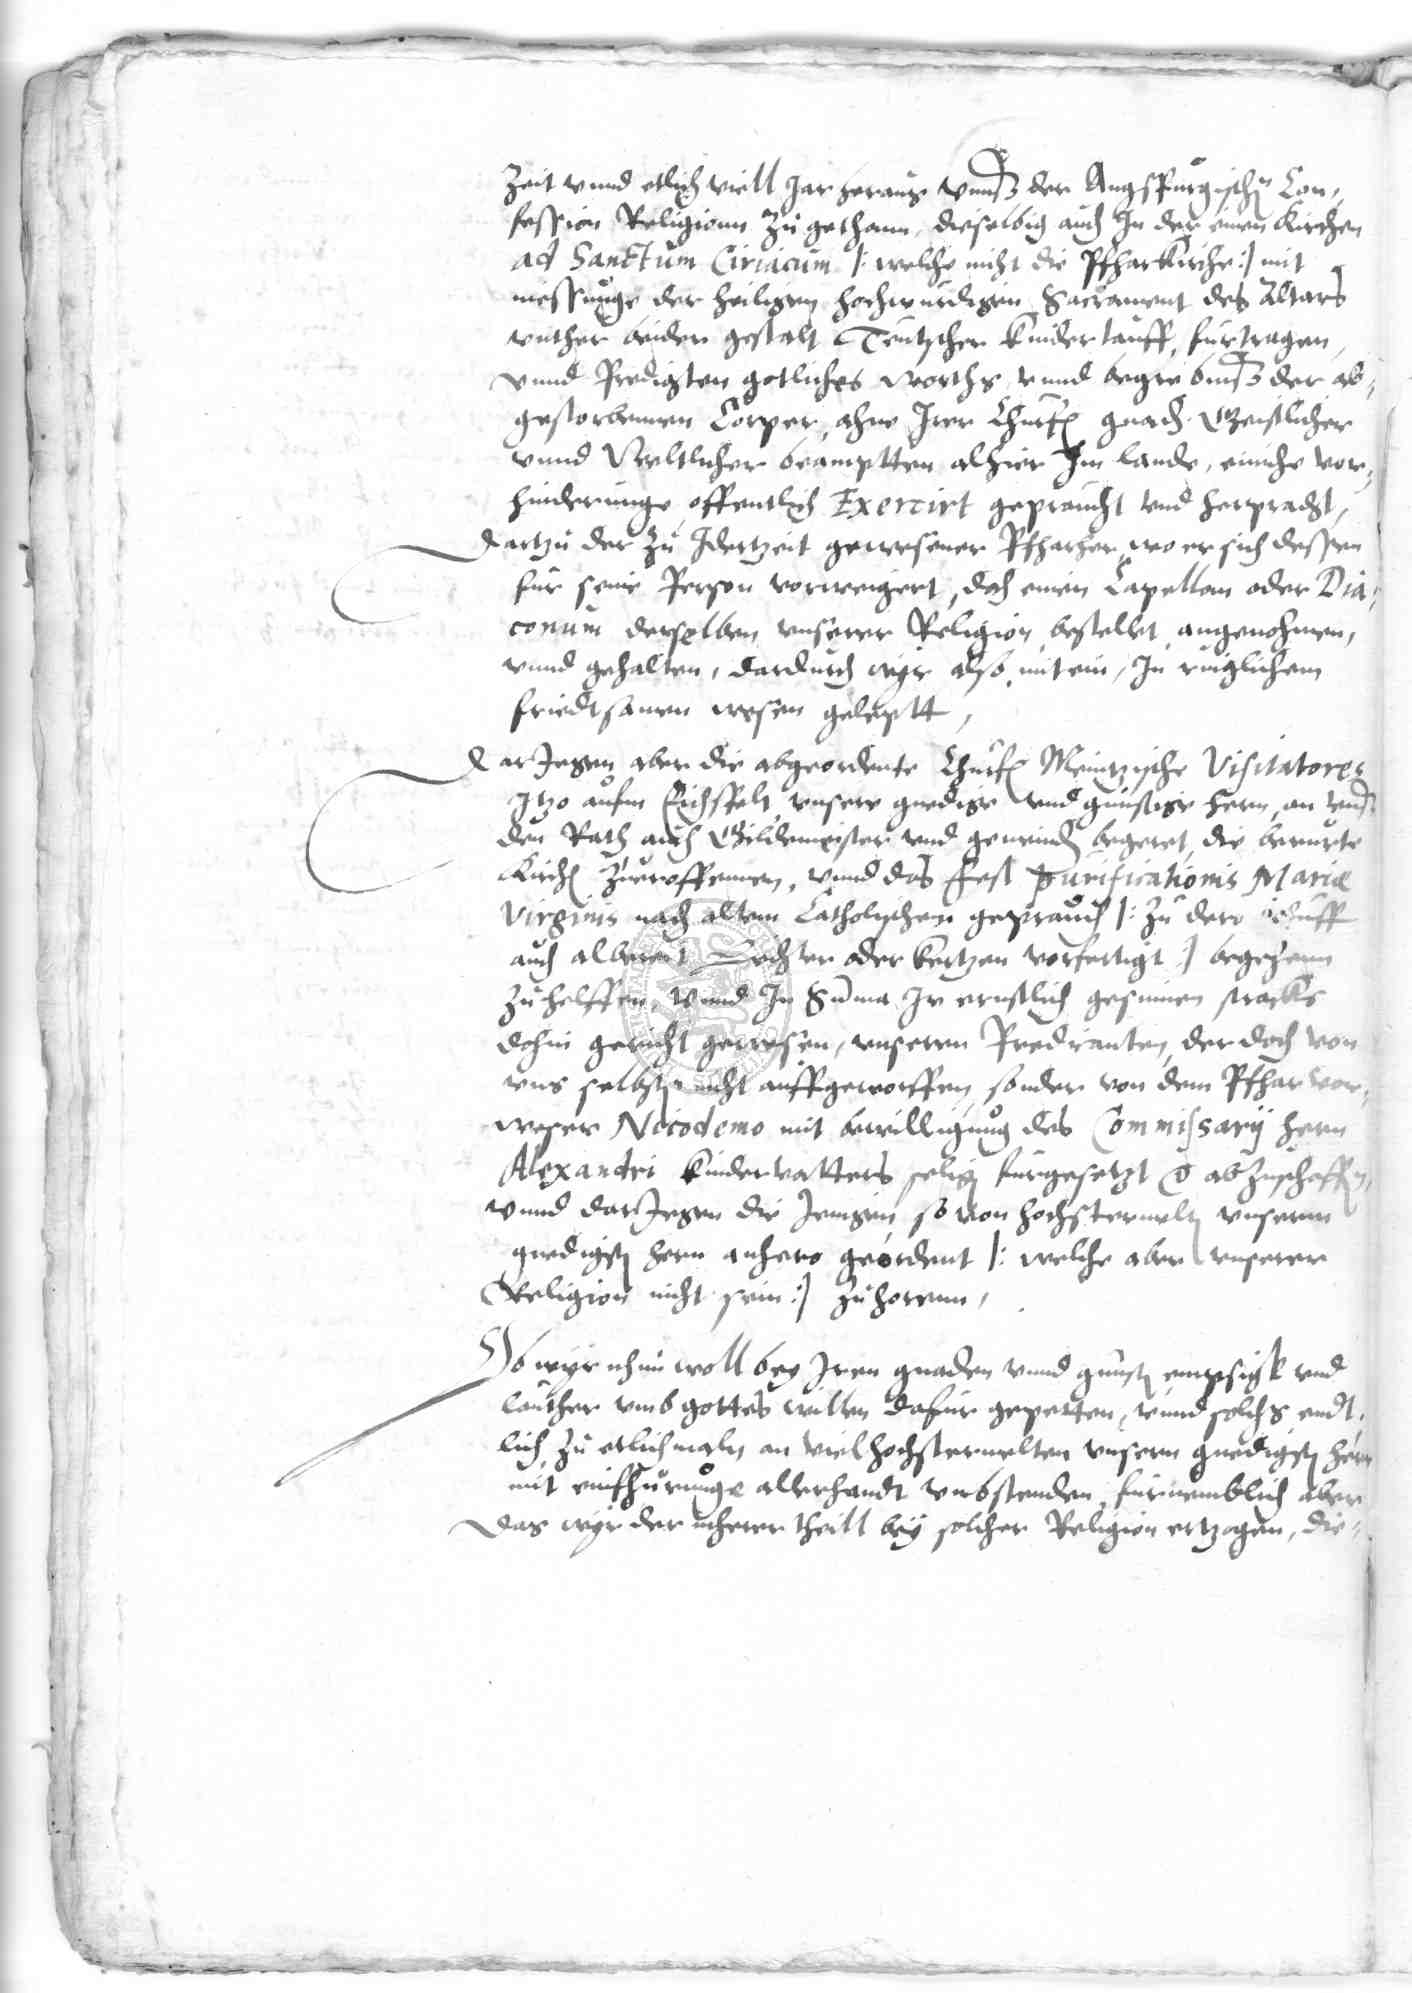 Zeit vnnd etlich viell Jar heraus vnns der Augspurgischen Con,
fession Religionn zugethann, dieselbig auch In der einen Kirchen
ad Sanctum Ciriacum |: welche nicht die Pfharkirche :| mit
niessunge der heiligen hochwurdigen Sacrament des Altars
vnther beider gestalt Teutzscher kinder tauff, furtragen,
vnnd Predigten gotliches worths vnnd begrebnus der ab,
gestorbennen Corper, ahne Irer Churf. gnad. Geistlicher
vnnd Weltlicher beamptten alhier Im lande, einiche vor,
hinderunge offentlich Exercirt gepraucht vnd herpracht,
dartzu der zu Idertzeit gewesener Pfharher, wo er sich dessen
fur seine Person vorweigert, doch einen Capellan oder Dia,
conum derselben vnserer Religion bestellet angenohmen,
vnnd gehalten, dardurch wyr also mit ein, In ruiglichem
friedtsamen wesen geleptt,
dar Jegen aber die abgeordente Churf. Meintzische Visitatores
Itzo aufm Eichsfelt, vnsere gnedige vnd gunstige hern, an vns
den Rath auch Gildemeister vnd gemeinde begeret, die berurte
Kirche zueroffennen, vnnd das fest purificationis Mariæ
Virginis nach altem Catholischem geprauch |: zu dero
auch albereit Lichter oder kertzen vorfertigt :| begehenn
zu helffen, vnnd In Summa Ir ernstlich gesinnen stracks
dohin gericht gewesen, vnseren Predicanten, der doch von
vns selbst nicht auffgeworffen, sonder von dem Pfhar vor,
weser Nicodemo mit bewilligung des Commissarij hern
Alexandri kindervatters selig furgesetzt abzuschaffen,
vnnd dar Jegen die Jenigen so von hochstermelt. vnserm
gnedigst. hern anhero geordent |: welche aber vnserer
Religion nicht sein :| zu horenn,
Ob wyr nhun woll bey Iren gnaden vnnd gunst. empsigk vnd
lauther vmb gottes willen dafur gepetten, vnnd solchs endt,
lich zu etlich maln an viel hochstermelten vnsern gnedigst. hern
mit einfhurunge allerhandt vmbstenden, furnemblich aber
das wyr der meherer theill bey solcher Religion ertzogen, die,